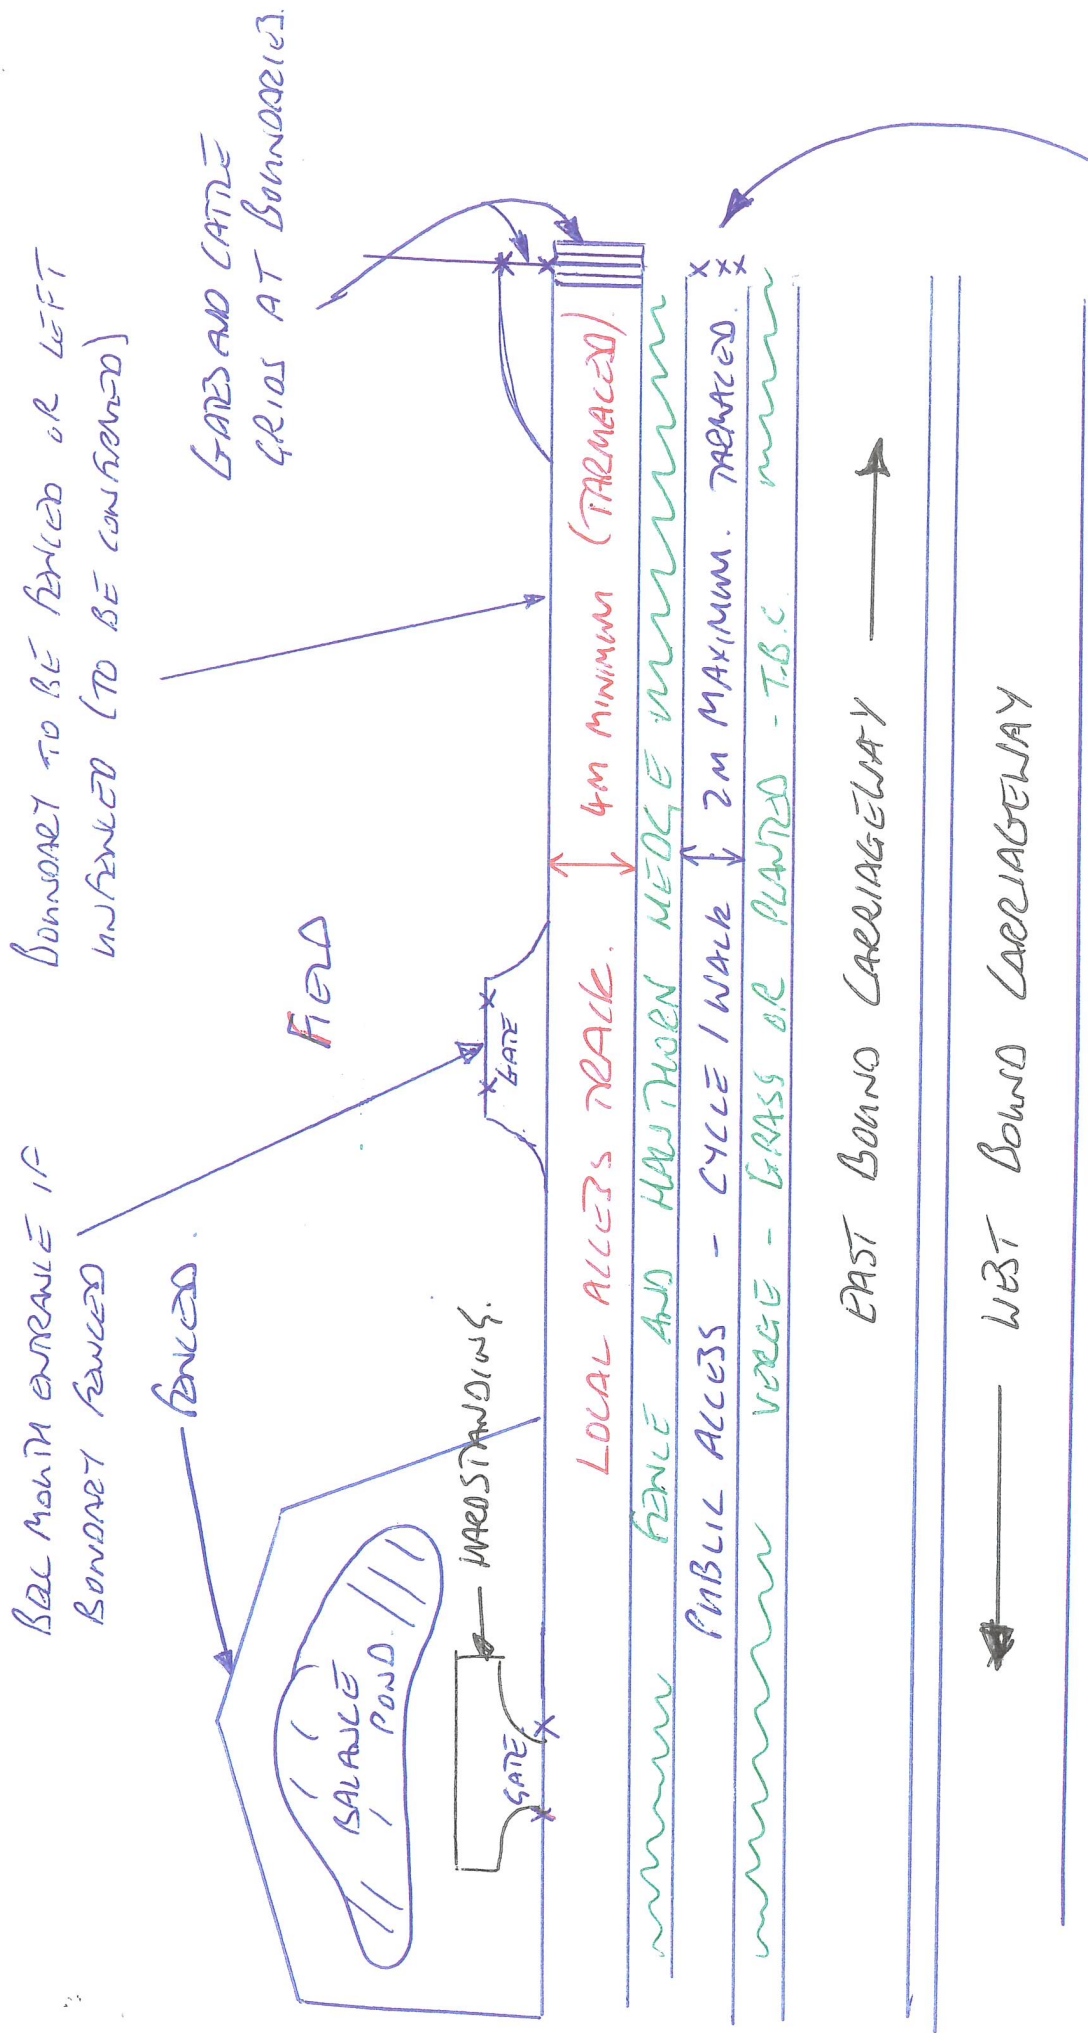 BELL MOUTH ENTRANCE IF
BONDARY FENCED
BOUNDARY TO BE FENCED OR LEFT
UNFENCED (TO BE CONFIRMED)
GATES AND CATTLE
GRIDS AT BOUNDARIES.
FENCED
FIELD
BALANCE
POND
HARDSTANDING.
GATE
GATE
LOCAL ACCESS TRACK. 4M MINIMUM (TARMACED)
FENCE AND HAWTHORN HEDGE
PUBLIC ACCESS - CYCLE / WALK 2M MAXIMUM. TARMACED.
VERGE - GRASS OR PLANTED - T.B.C
EAST BOUND CARRIAGEWAY
WEST BOUND CARRIAGEWAY